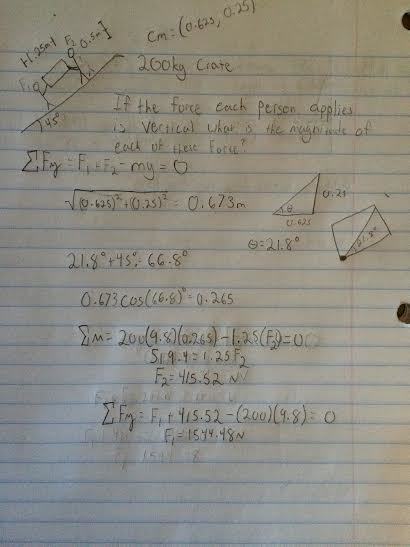 cm = (0.625, 0.25)
1.25m
F2
0.5m
F1
45°
200kg Crate
If the force each person applies
is vertical what is the magnitude of
each of these Force?
ΣFy = F1 + F2 - mg = 0
√(0.625)² + (0.25)² = 0.673m
0.25
θ
0.625
θ = 21.8°
21.8°
21.8° + 45° = 66.8°
0.673 cos(66.8)° = 0.265
Σm = 200(9.8)(0.265) - 1.25(F2) = 0
519.4 = 1.25F2
F2 = 415.52 N
ΣFy = F1 + 415.52 - (200)(9.8) = 0
F1 = 1544.48N